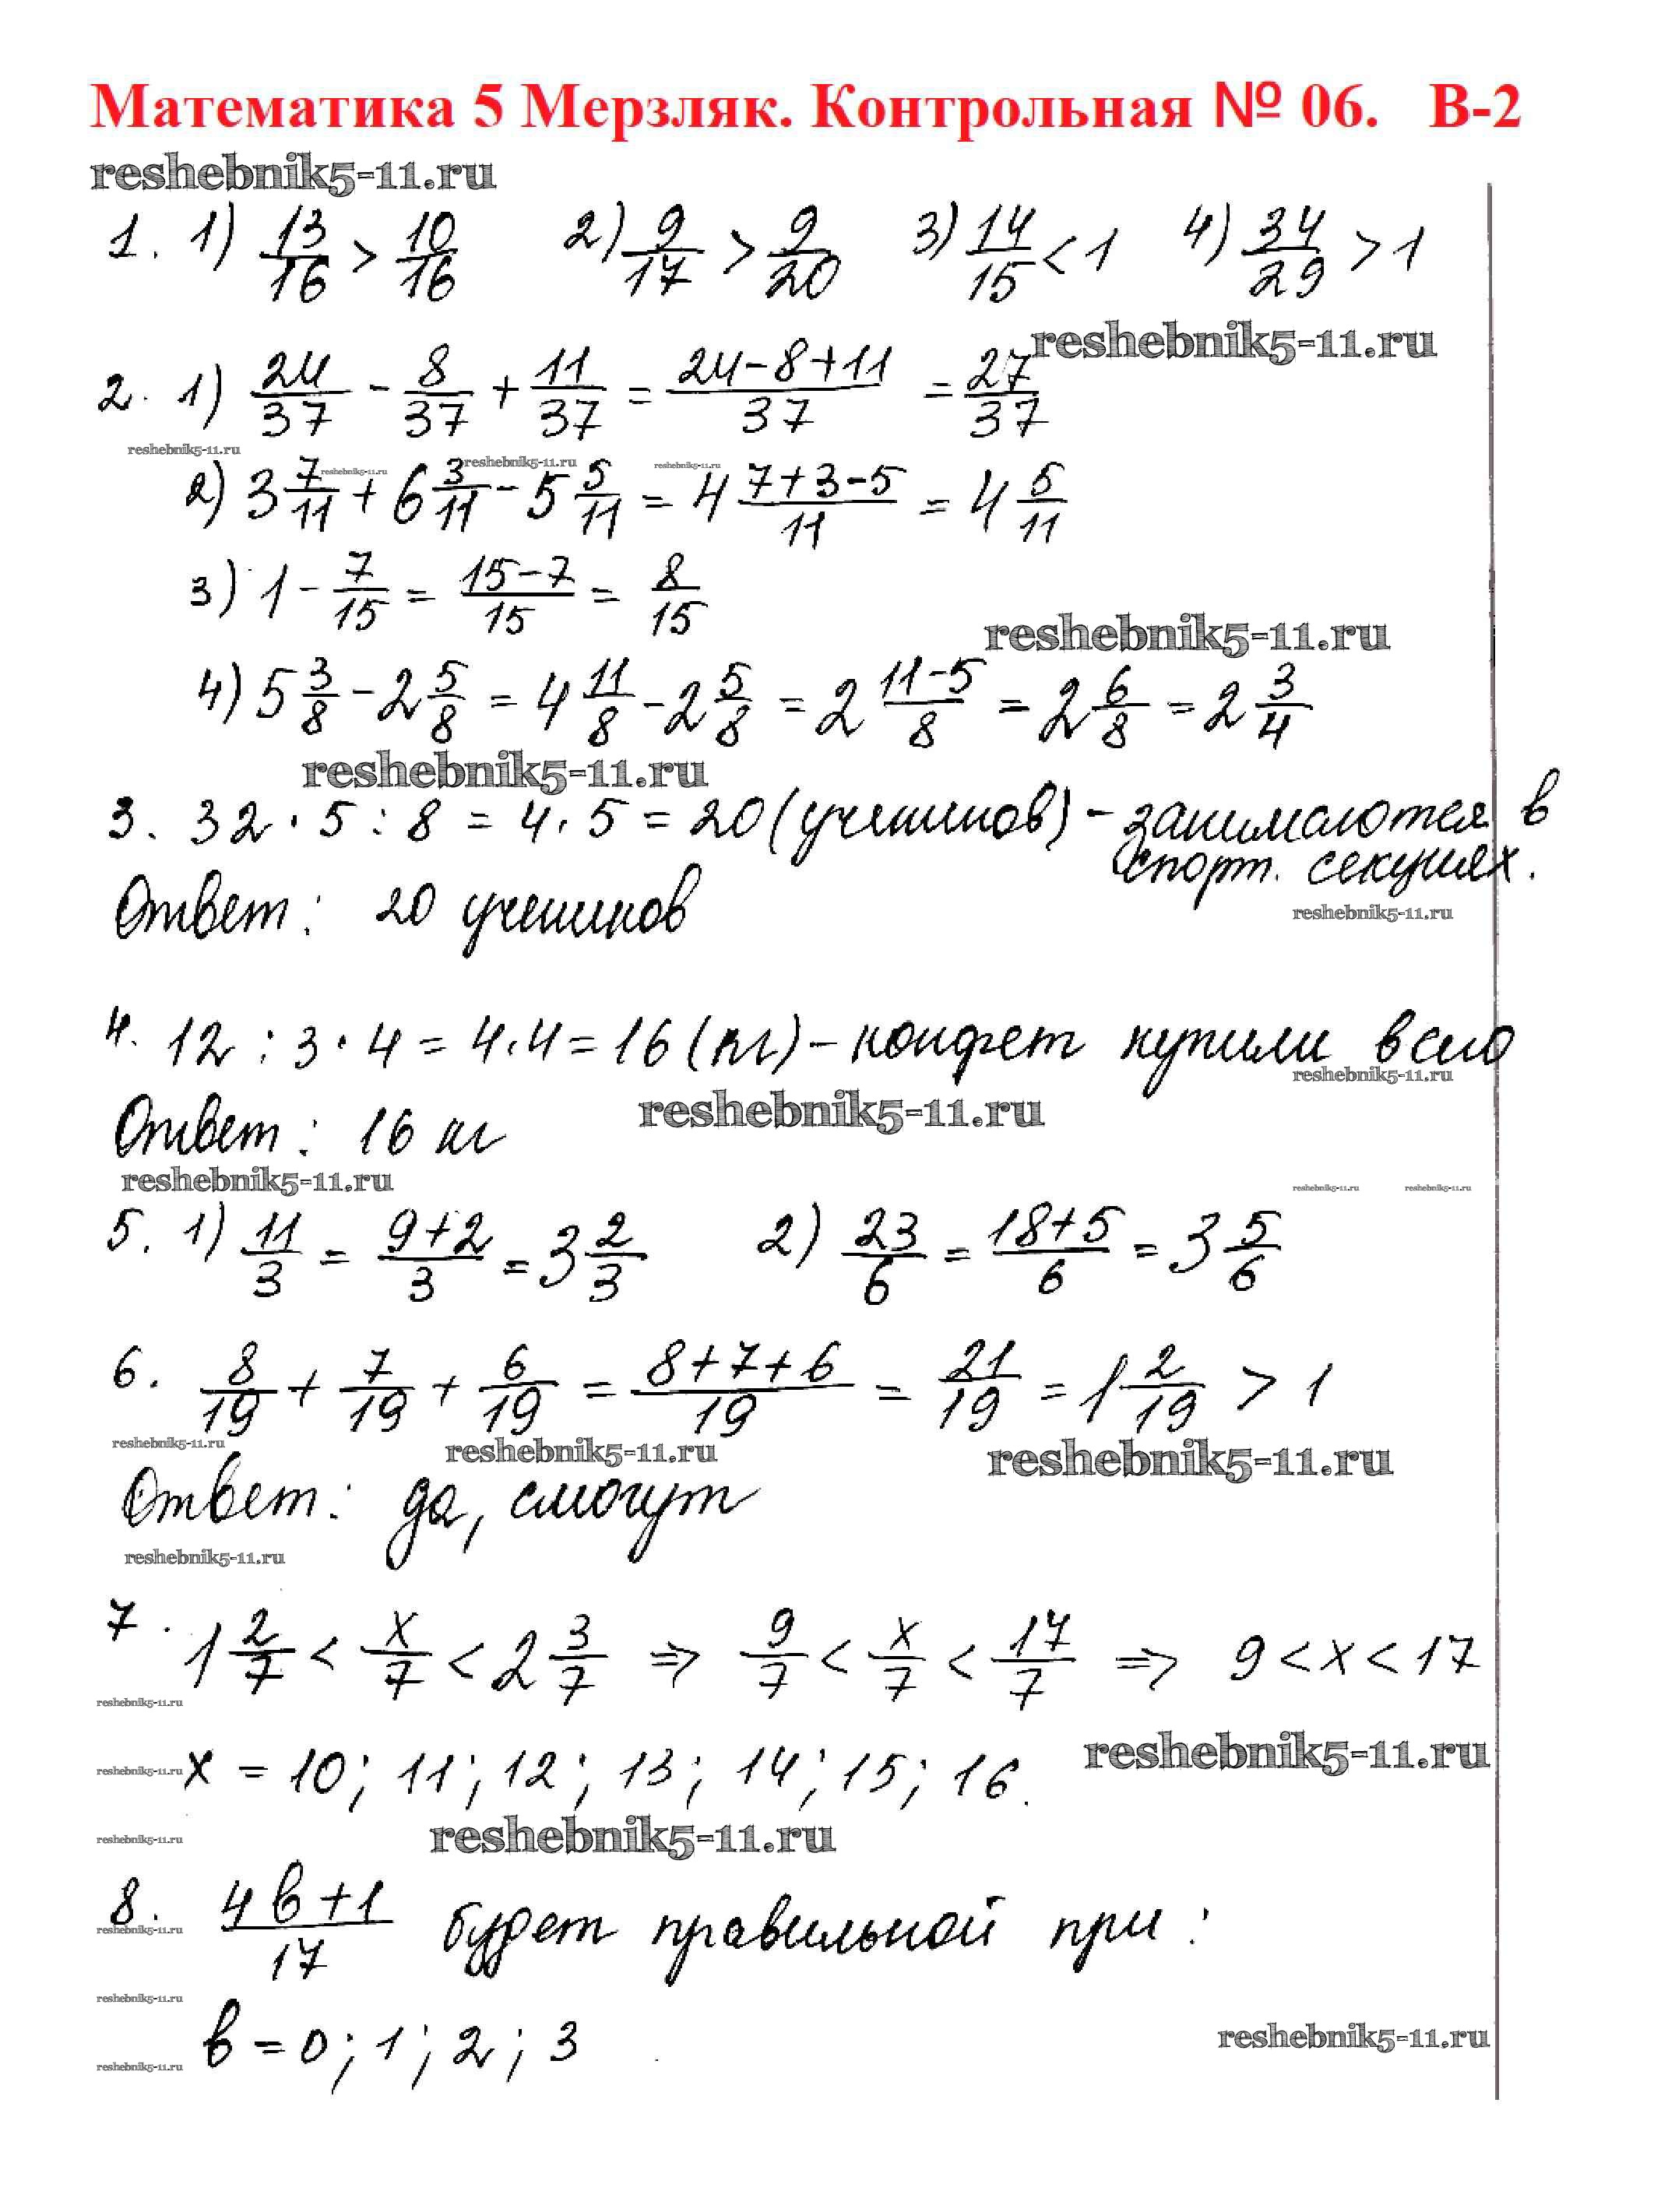 Математика 5 Мерзляк. Контрольная № 06. В-2
reshebnik5-11.ru
1. 1) 13/16 > 10/16 2) 9/17 > 9/20 3) 14/15 < 1 4) 34/29 > 1
reshebnik5-11.ru
2. 1) 24/37 - 8/37 + 11/37 = (24-8+11)/37 = 27/37
reshebnik5-11.ru reshebnik5-11.ru reshebnik5-11.ru reshebnik5-11.ru
2) 3 7/11 + 6 3/11 - 5 5/11 = 4 (7+3-5)/11 = 4 5/11
3) 1 - 7/15 = (15-7)/15 = 8/15
reshebnik5-11.ru
4) 5 3/8 - 2 5/8 = 4 11/8 - 2 5/8 = 2 (11-5)/8 = 2 6/8 = 2 3/4
reshebnik5-11.ru
3. 32 · 5 : 8 = 4 · 5 = 20 (учеников) - занимаются в
спорт. секциях.
Ответ: 20 учеников
reshebnik5-11.ru
4. 12 : 3 · 4 = 4 · 4 = 16 (кг) - конфет купили всего
reshebnik5-11.ru
reshebnik5-11.ru
Ответ: 16 кг
reshebnik5-11.ru reshebnik5-11.ru reshebnik5-11.ru
5. 1) 11/3 = (9+2)/3 = 3 2/3 2) 23/6 = (18+5)/6 = 3 5/6
6. 8/19 + 7/19 + 6/19 = (8+7+6)/19 = 21/19 = 1 2/19 > 1
reshebnik5-11.ru reshebnik5-11.ru reshebnik5-11.ru
Ответ: да, смогут
reshebnik5-11.ru
7. 1 2/7 < x/7 < 2 3/7 ⇒ 9/7 < x/7 < 17/7 ⇒ 9 < x < 17
reshebnik5-11.ru
reshebnik5-11.ru x = 10; 11; 12; 13; 14; 15; 16. reshebnik5-11.ru
reshebnik5-11.ru reshebnik5-11.ru
8. (4в+1)/17 будет правильной при:
reshebnik5-11.ru
reshebnik5-11.ru
в = 0; 1; 2; 3
reshebnik5-11.ru
reshebnik5-11.ru